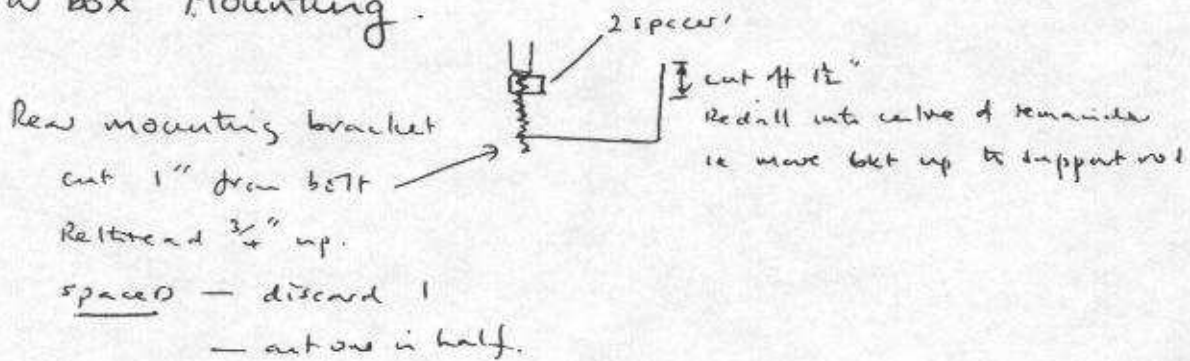 box Mounting.
2 spacers
cut off 1½"
Redrill into centre of remainder
ie move bkt up to support rod
Rear mounting bracket
cut 1" from bolt
Rethread ¾" up.
spacers — discard 1
— cut one in half.